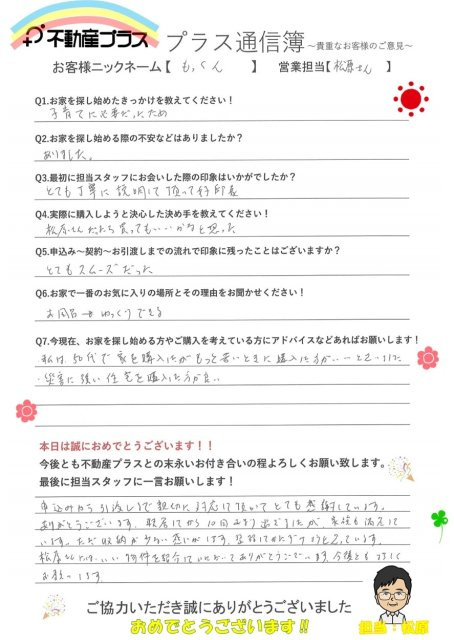 不動産プラス プラス通信簿 ～貴重なお客様のご意見～
お客様ニックネーム【 もっくん 】 営業担当【松原さん 】
Q1.お家を探し始めたきっかけを教えてください！
子育てに必要だったため
Q2.お家を探し始める際の不安などはありましたか？
ありました。
Q3.最初に担当スタッフにお会いした際の印象はいかがでしたか？
とても丁寧に説明して頂って好印象
Q4.実際に購入しようと決心した決め手を教えてください！
松原さんだったら買ってもいいかなと思った
Q5.申込み～契約～お引渡しまでの流れで印象に残ったことはございますか？
とてもスムーズだった
Q6.お家で一番のお気に入りの場所とその理由をお聞かせください！
お風呂 ゆっくりできる
Q7.今現在、お家を探し始める方やご購入を考えている方にアドバイスなどあればお願いします！
私は、50代で家を購入したがもっと若いときに購入した方がいいと思いました
・災害に強い住宅を購入した方が良い
本日は誠におめでとうございます！！
今後とも不動産プラスとの末永いお付き合いの程よろしくお願い致します。
最後に担当スタッフに一言お願いします！
申込みから引渡しまで親切に対応して頂いてとても感謝しています。
ありがとうございます。
います。ただ収納が少ない感じがします。
松原さんにはいい物件を紹介していただいてありがとうございます。今後ともよろしく
お願いします
ご協力いただき誠にありがとうございました
おめでとうございます!!
担当 松原